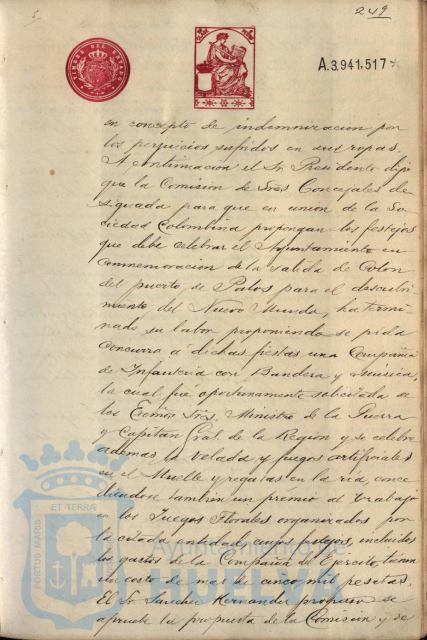 5
249
TIMBRE DEL ESTADO
A.3.941,517
en concepto de indemnizacion por
los perjuicios sufridos en sus ropas.
A continuacion el Sr. Presidente dijo
que la Comision de Sres Concejales de
signada para que en union de la So
ciedad Colombina propongan los festejos
que debe celebrar el Ayuntamiento en
conmemoracion de la salida de Colon
del puerto de Palos para el descubri
miento del Nuevo Mundo, ha termi
nado su labor proponiendo se pida
concurra á dichas fiestas una Compañia
de Infanteria con Bandera y Musica,
la cual fué oportunamente solicitada de
los Excmos Sres. Ministro de la Guerra
y Capitan Gral. de la Region y se celebre
ademas la velada y fuegos artificiales
en el Muelle y regatas en la ria, conce
diendose tambien un premio al trabajo
en los Juegos Florales organizados por
la citada entidad, cuyos festejos, incluidos
los gastos de la Compañia de Ejercito, tienen
un costo de mas de cinco mil pesetas.
El Sr. Sanchez Hernandez propuso se
apruebe la propuesta de la Comision y se
PORTUS MARIS ET TERRAE
Ayuntamiento de
HUELVA